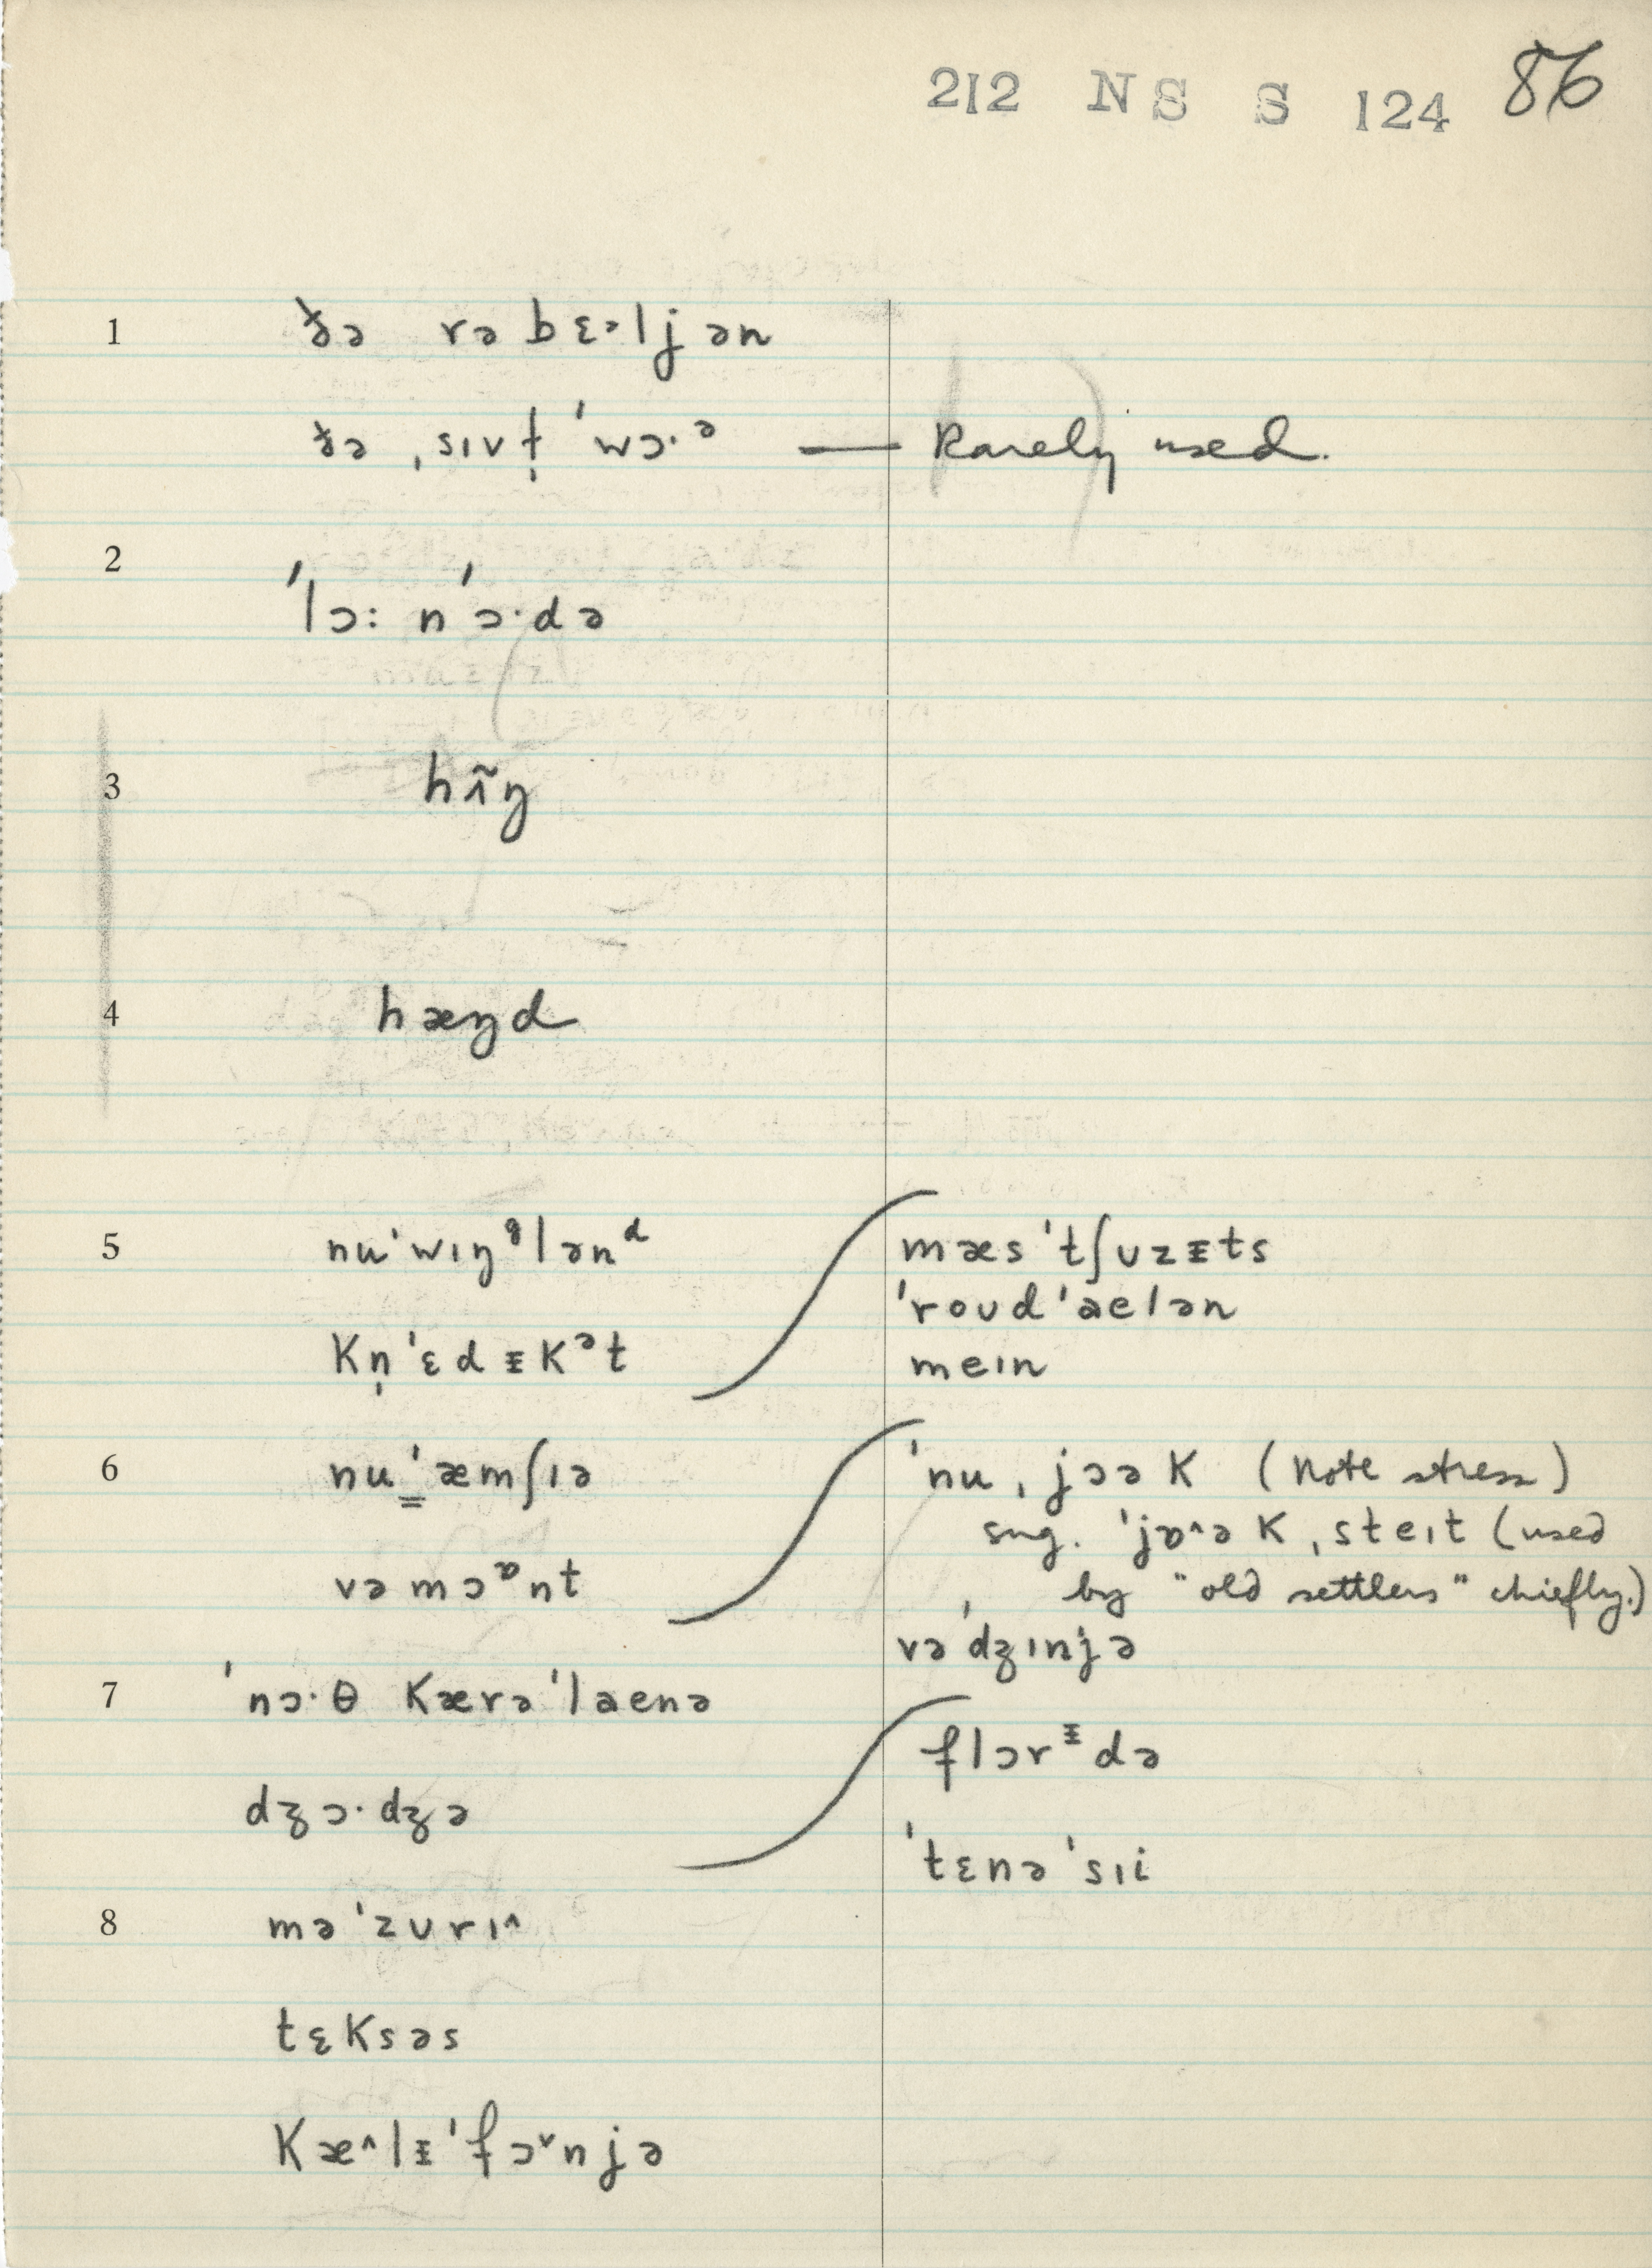 212 NS S 124 86
1 ðə rəbɛəljən
ðə ˌsɪvḷ ˈwɔ·ᵊ — Rarely used.
2 ˈlɔ: nˈɔ·də
3 hɪ̃ŋ
4 hæŋd
5 nuˈwɪŋᶢlənᵈ
kṇˈɛdᵻkᵊt
mæsˈtʃuzᵻts
ˈroudˈaelən
meɪn
6 nu̳ˈæmʃɪə
vəmɔᶛnt
ˈnuˌjɔək (note stress)
sug. ˈjɒ^ək ˌsteɪt (used
by "old settlers" chiefly.)
vəˈdʒɪnjə
7 ˈnɔ·θ kærəˈlaenə
dʒɔ·dʒə
flɔrᵻdə
ˈtɛnəˈsɪi
8 məˈzʊrɪ^
tɛksəs
kæ^lᵻˈfɔˇnjə